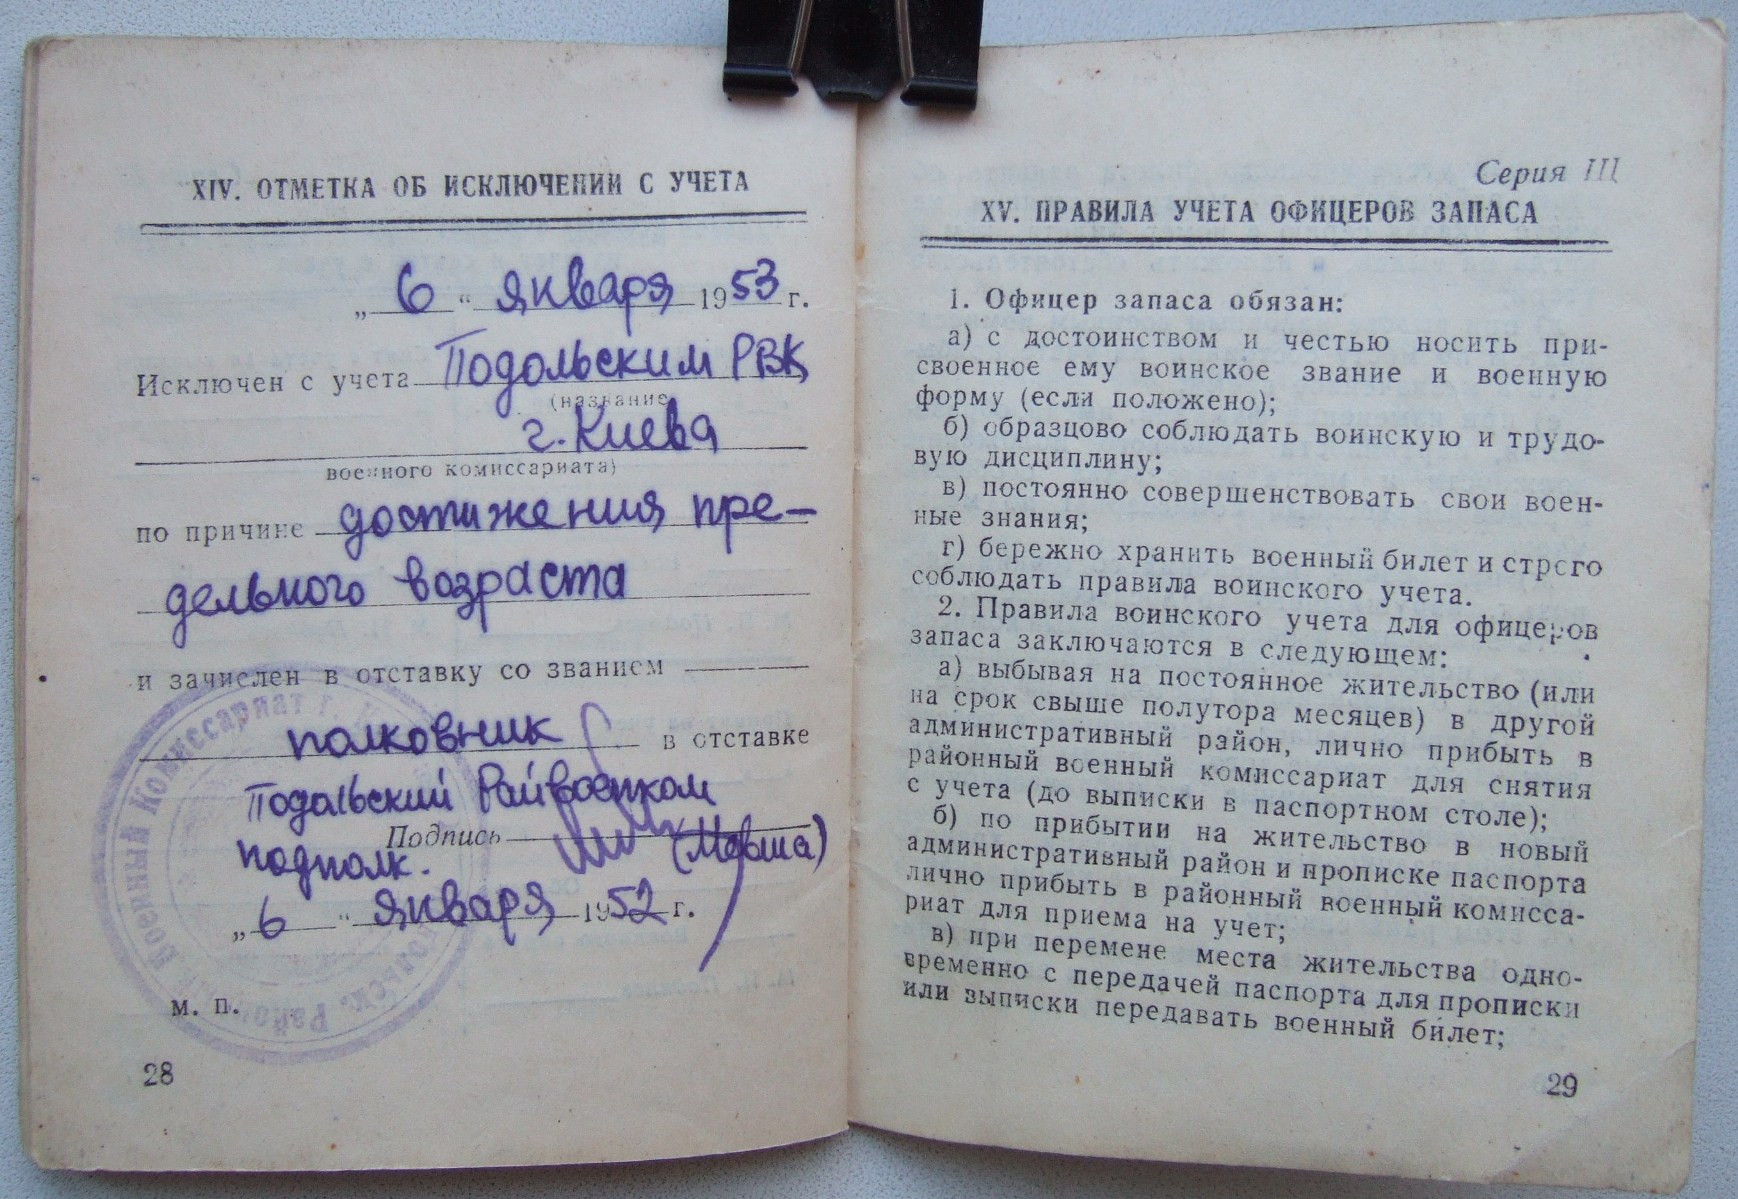 XIV. ОТМЕТКА ОБ ИСКЛЮЧЕНИИ С УЧЕТА
„ 6 “ января 1953 г.
Исключен с учета Подольским РВК
(название
г. Киева
военного комиссариата)
по причине достижения пре-
дельного возраста
и зачислен в отставку со званием
полковник в отставке
Подольский Райвоенком
Подпись
подполк. (Мовша)
„ 6 “ января 1952 г.
Районный Военный Комиссариат г.
м. п.
28
Серия III
XV. ПРАВИЛА УЧЕТА ОФИЦЕРОВ ЗАПАСА
1. Офицер запаса обязан:
а) с достоинством и честью носить при-
своенное ему воинское звание и военную
форму (если положено);
б) образцово соблюдать воинскую и трудо-
вую дисциплину;
в) постоянно совершенствовать свои воен-
ные знания;
г) бережно хранить военный билет и строго
соблюдать правила воинского учета.
2. Правила воинского учета для офицеров
запаса заключаются в следующем:
а) выбывая на постоянное жительство (или
на срок свыше полутора месяцев) в другой
административный район, лично прибыть в
районный военный комиссариат для снятия
с учета (до выписки в паспортном столе);
б) по прибытии на жительство в новый
административный район и прописке паспорта
лично прибыть в районный военный комисса-
риат для приема на учет;
в) при перемене места жительства одно-
временно с передачей паспорта для прописки
или выписки передавать военный билет;
29